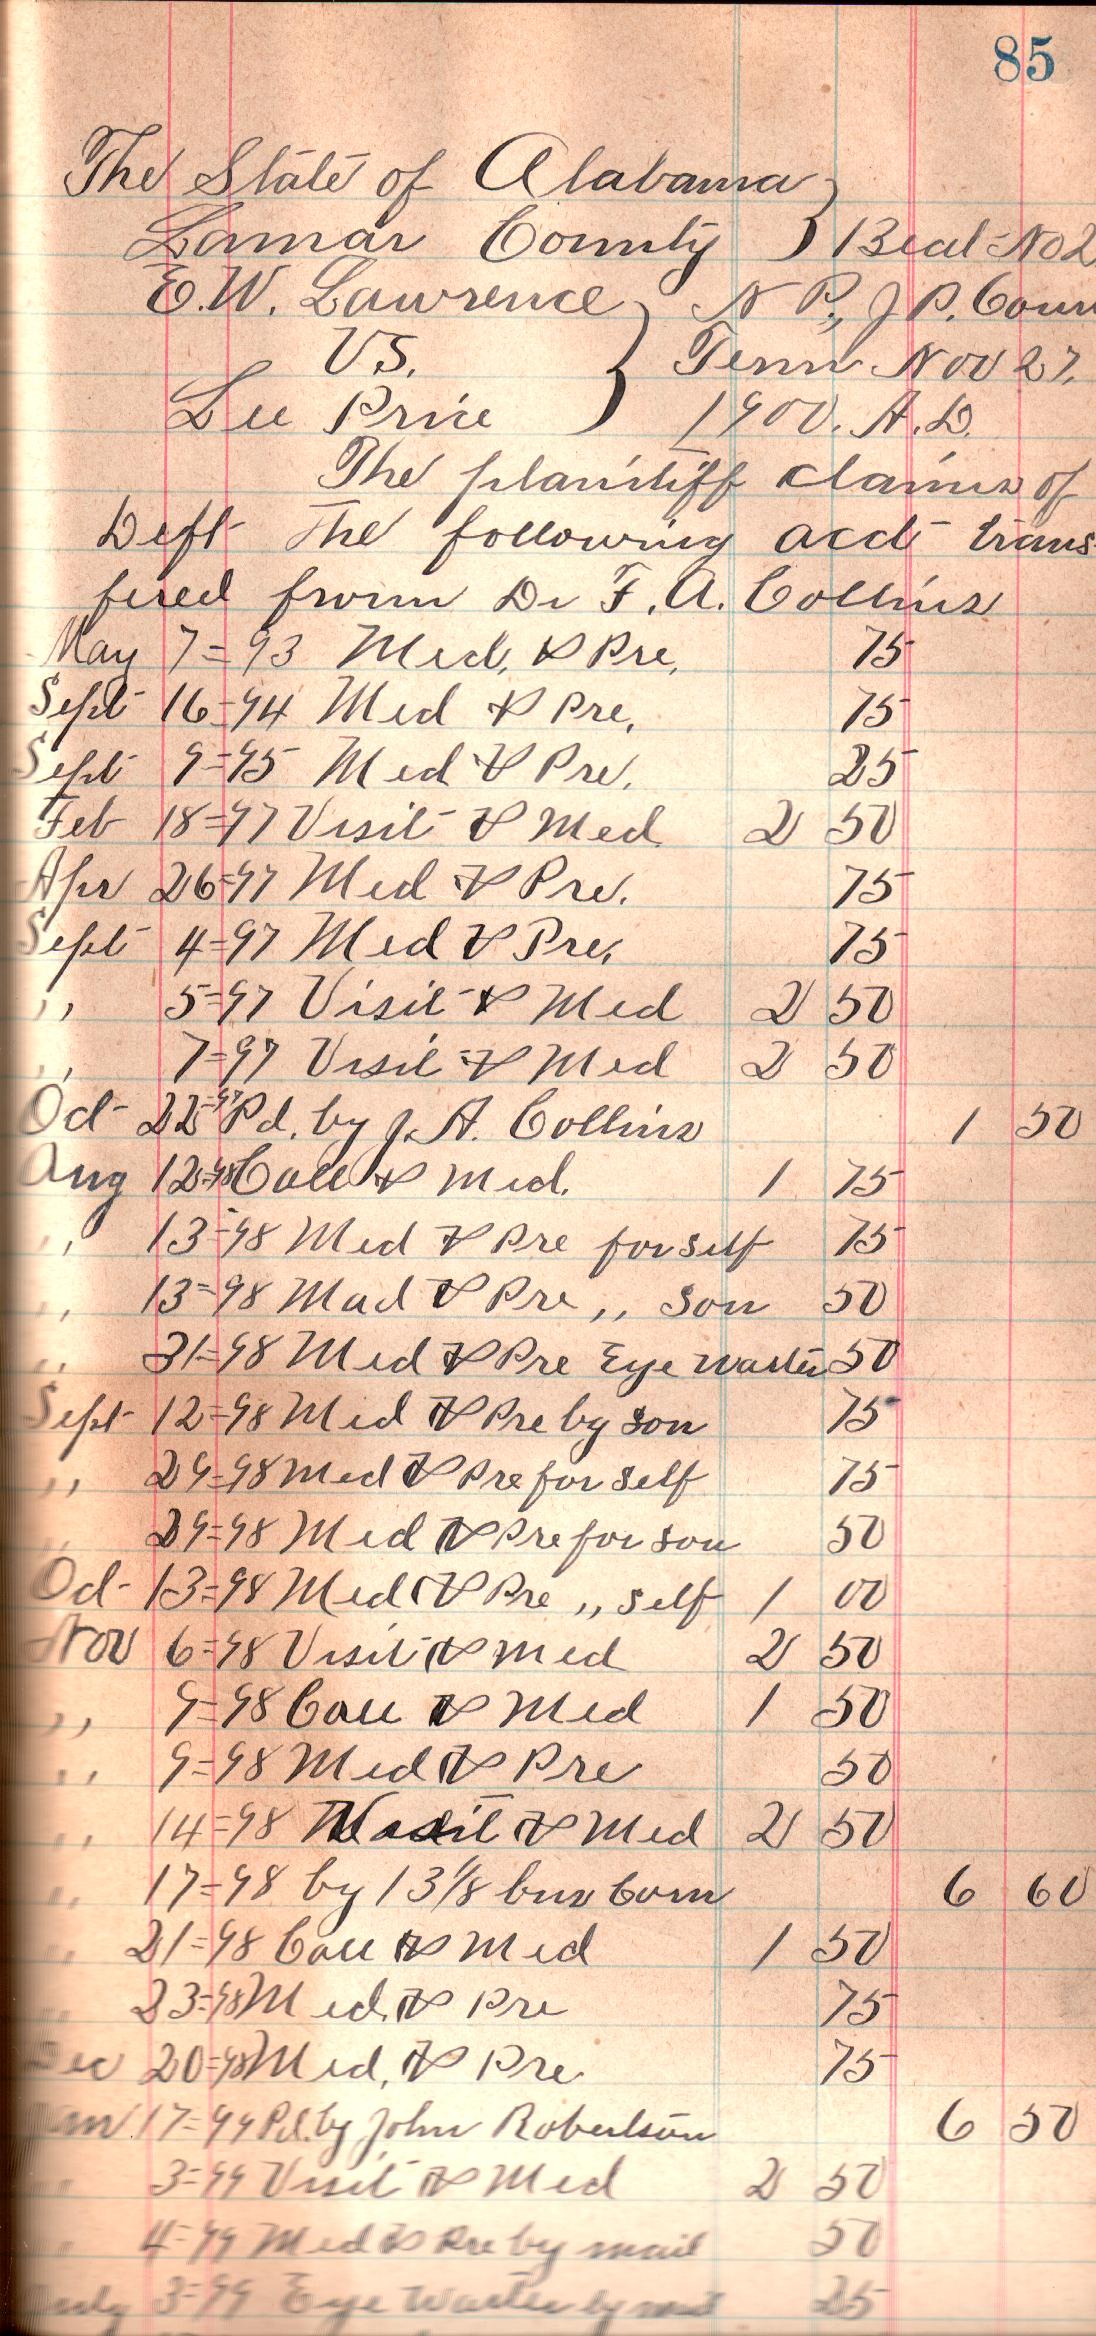 85
The State of Alabama
Lamar County } Beat No 2
E.W. Lawrence N P., J P. Cour
VS. } Term Nov 27.
Lee Price 1900. A.D.
The plaintiff claims of
Deft The following acct trans-
fered from Dr F. A. Collins
May 7=93 Med, & Pre, 75
Sept 16=94 Med & Pre, 75
Sept 9=95 Med & Pre. 25
Feb 18=97 Visit & Med 2 50
Apr 26=97 Med & Pre. 75
Sept 4=97 Med & Pre, 75
,, 5=97 Visit & Med 2 50
,, 7=97 Visit & Med 2 50
Oct 22=97 Pd. by J. A. Collins 1 50
Aug 12=98 Call & Med. 1 75
,, 13=98 Med & Pre for self 75
,, 13=98 Mad & Pre ,, son 50
,, 31=98 Med & Pre Eye Waster 50
Sept 12=98 Med & Pre by son 75
,, 29=98 Med & Pre for self 75
,, 29=98 Med & Pre for son 50
Oct 13=98 Med & Pre ,, self 1 00
Nov 6=98 Visit & Med 2 50
,, 9=98 Call & Med 1 50
,, 9=98 Med & Pre 50
,, 14=98 Visit & Med 2 50
,, 17=98 by 13 1/8 bus Corn 6 60
,, 21=98 Call & Med 1 50
,, 23=98 Med, & Pre 75
Dec 20=98 Med, & Pre 75
Jan 17=99 Pd. by John Robertson 6 50
,, 3=99 Visit & Med 2 50
,, 4=99 Med & Pre by mail 50
July 3=99 Eye Waster by mail 25